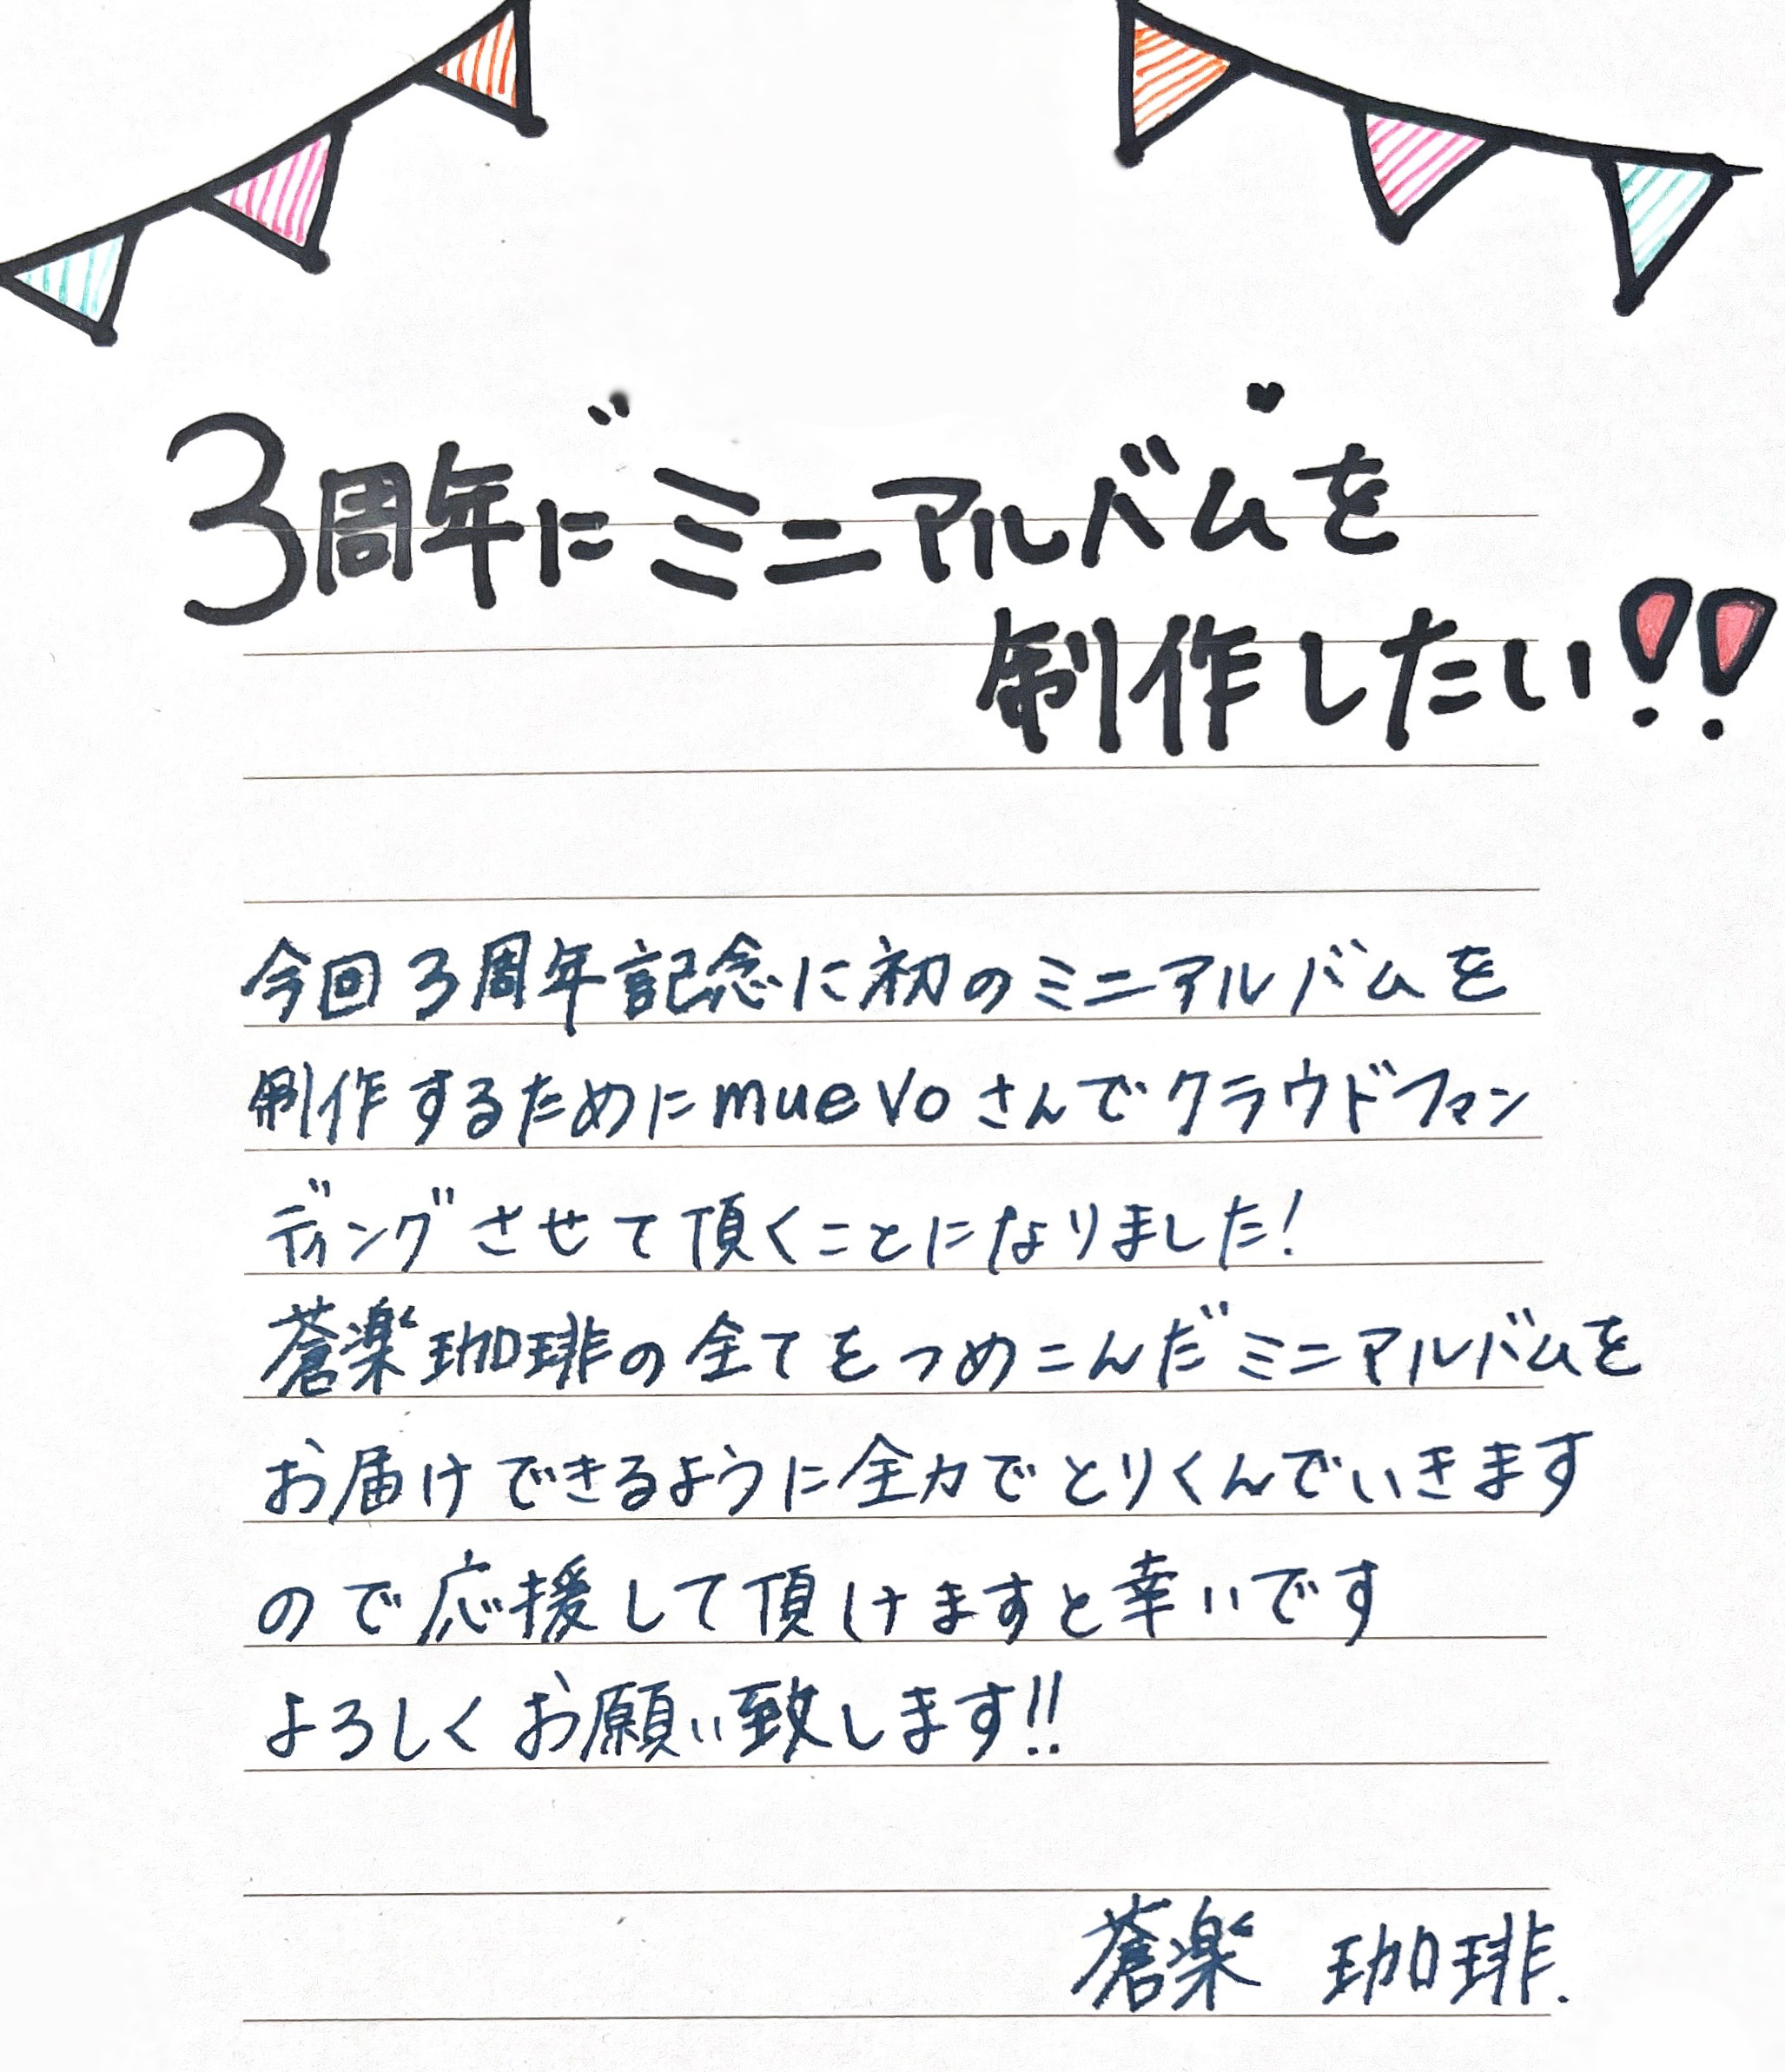 3周年にミニアルバムを
制作したい!!
今回3周年記念に初のミニアルバムを
制作するためにmuevoさんでクラウドファン
ディングさせて頂くことになりました!
蒼楽珈琲の全てをつめこんだミニアルバムを
お届けできるように全力でとりくんでいきます
ので応援して頂けますと幸いです
よろしくお願い致します!!
蒼楽 珈琲.